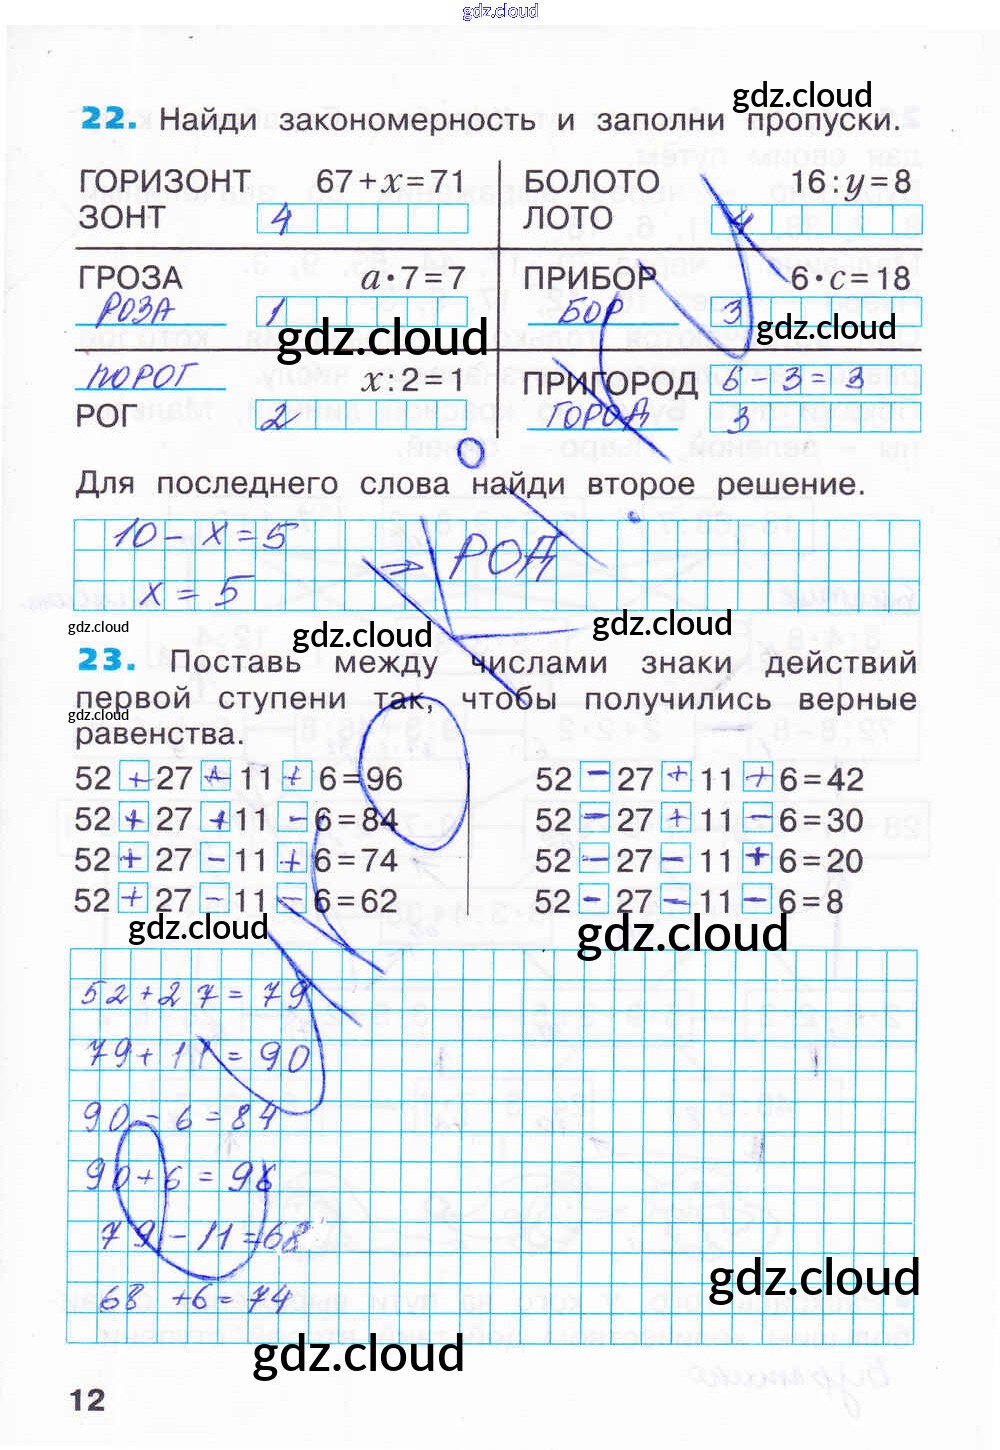 gdz.cloud
gdz.cloud
22. Найди закономерность и заполни пропуски.
ГОРИЗОНТ 67+x=71
ЗОНТ 4
БОЛОТО 16:y=8
ЛОТО 4
ГРОЗА a·7=7
РОЗА 1
ПРИБОР 6·c=18
БОР 3
gdz.cloud
gdz.cloud
ПОРОГ x:2=1
РОГ 2
ПРИГОРОД 6-3=3
ГОРОД 3
Для последнего слова найди второе решение.
10-x=5
x=5
РОД
gdz.cloud
gdz.cloud
gdz.cloud
23. Поставь между числами знаки действий
первой ступени так, чтобы получились верные
gdz.cloud
равенства.
52+27+11+6=96
52+27+11-6=84
52+27-11+6=74
52+27-11-6=62
52-27+11+6=42
52-27+11-6=30
52-27-11+6=20
52-27-11-6=8
gdz.cloud
gdz.cloud
52+27=79
79+11=90
90-6=84
90+6=96
79-11=68
68+6=74
gdz.cloud
gdz.cloud
12